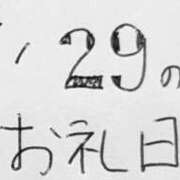 29の
お礼日